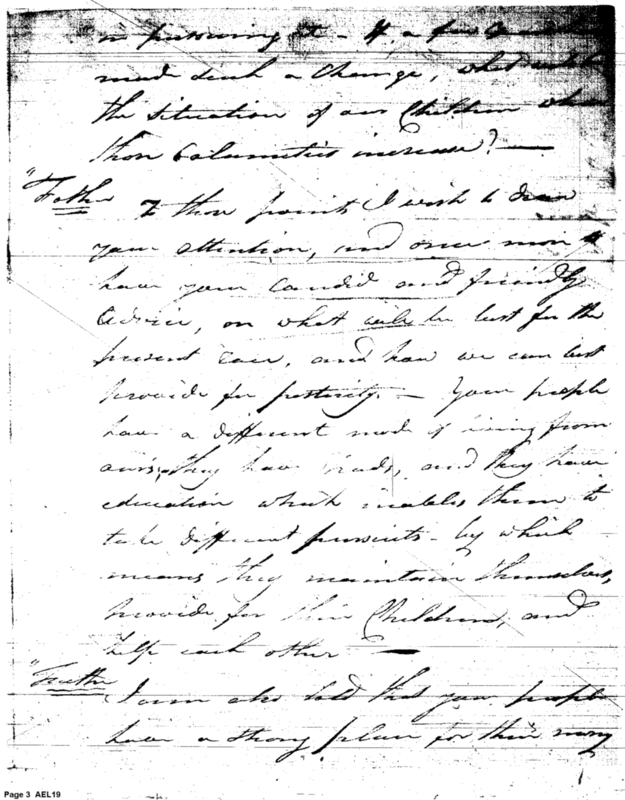 in pursuing it - If a few years
made such a Change, what will be
the situation of our Children when
those Calamities increase? —
"Father
To those points I wish to draw
your attention, and once more to
have your Candid and friendly
Advice, on what will be best for the
present race, and how we can best
provide for posterity. — Your people
have a different mode of living from
ours, they have trades, and they have
education which enables them to
take different pursuits - by which
means they maintain themselves,
provide for their Children, and
help each other —
"Father
I am also told that your people
have a strong place for their money
Page 3 AEL19